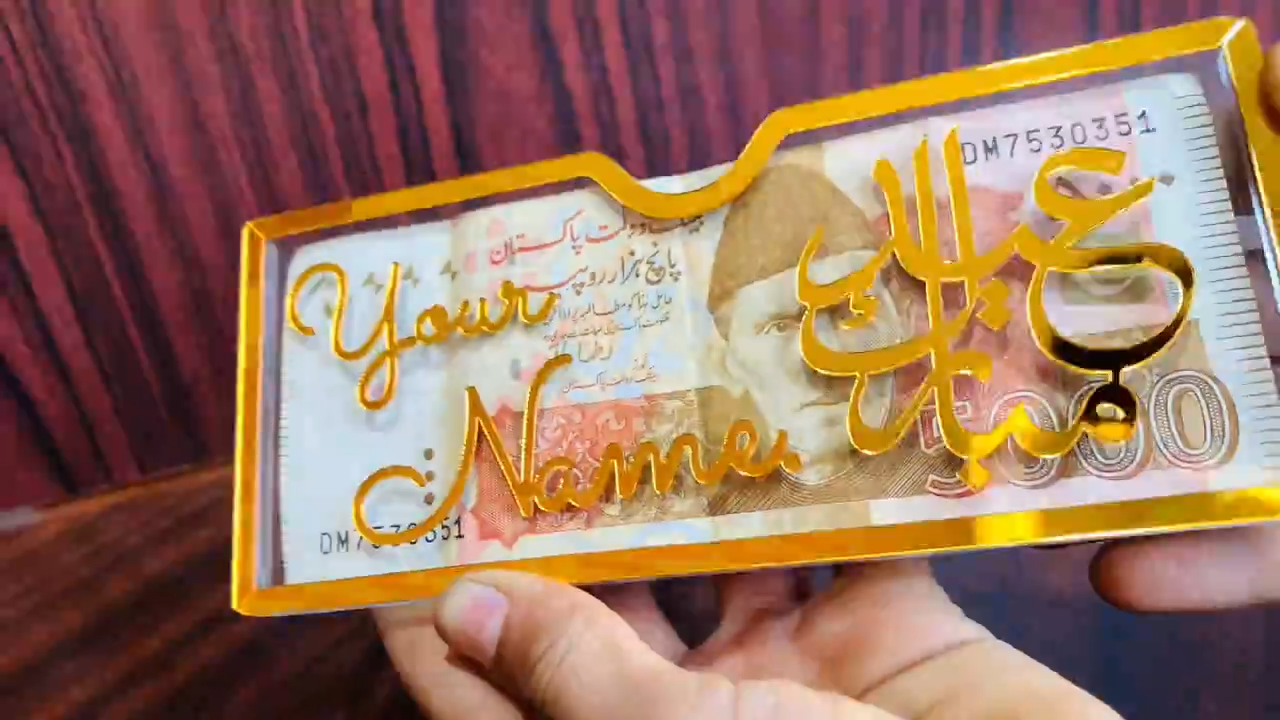 DM7530351
عید مبارک
Your
Name.
دولت پاکستان
پانچ ہزار روپیہ
5000
DM7530351